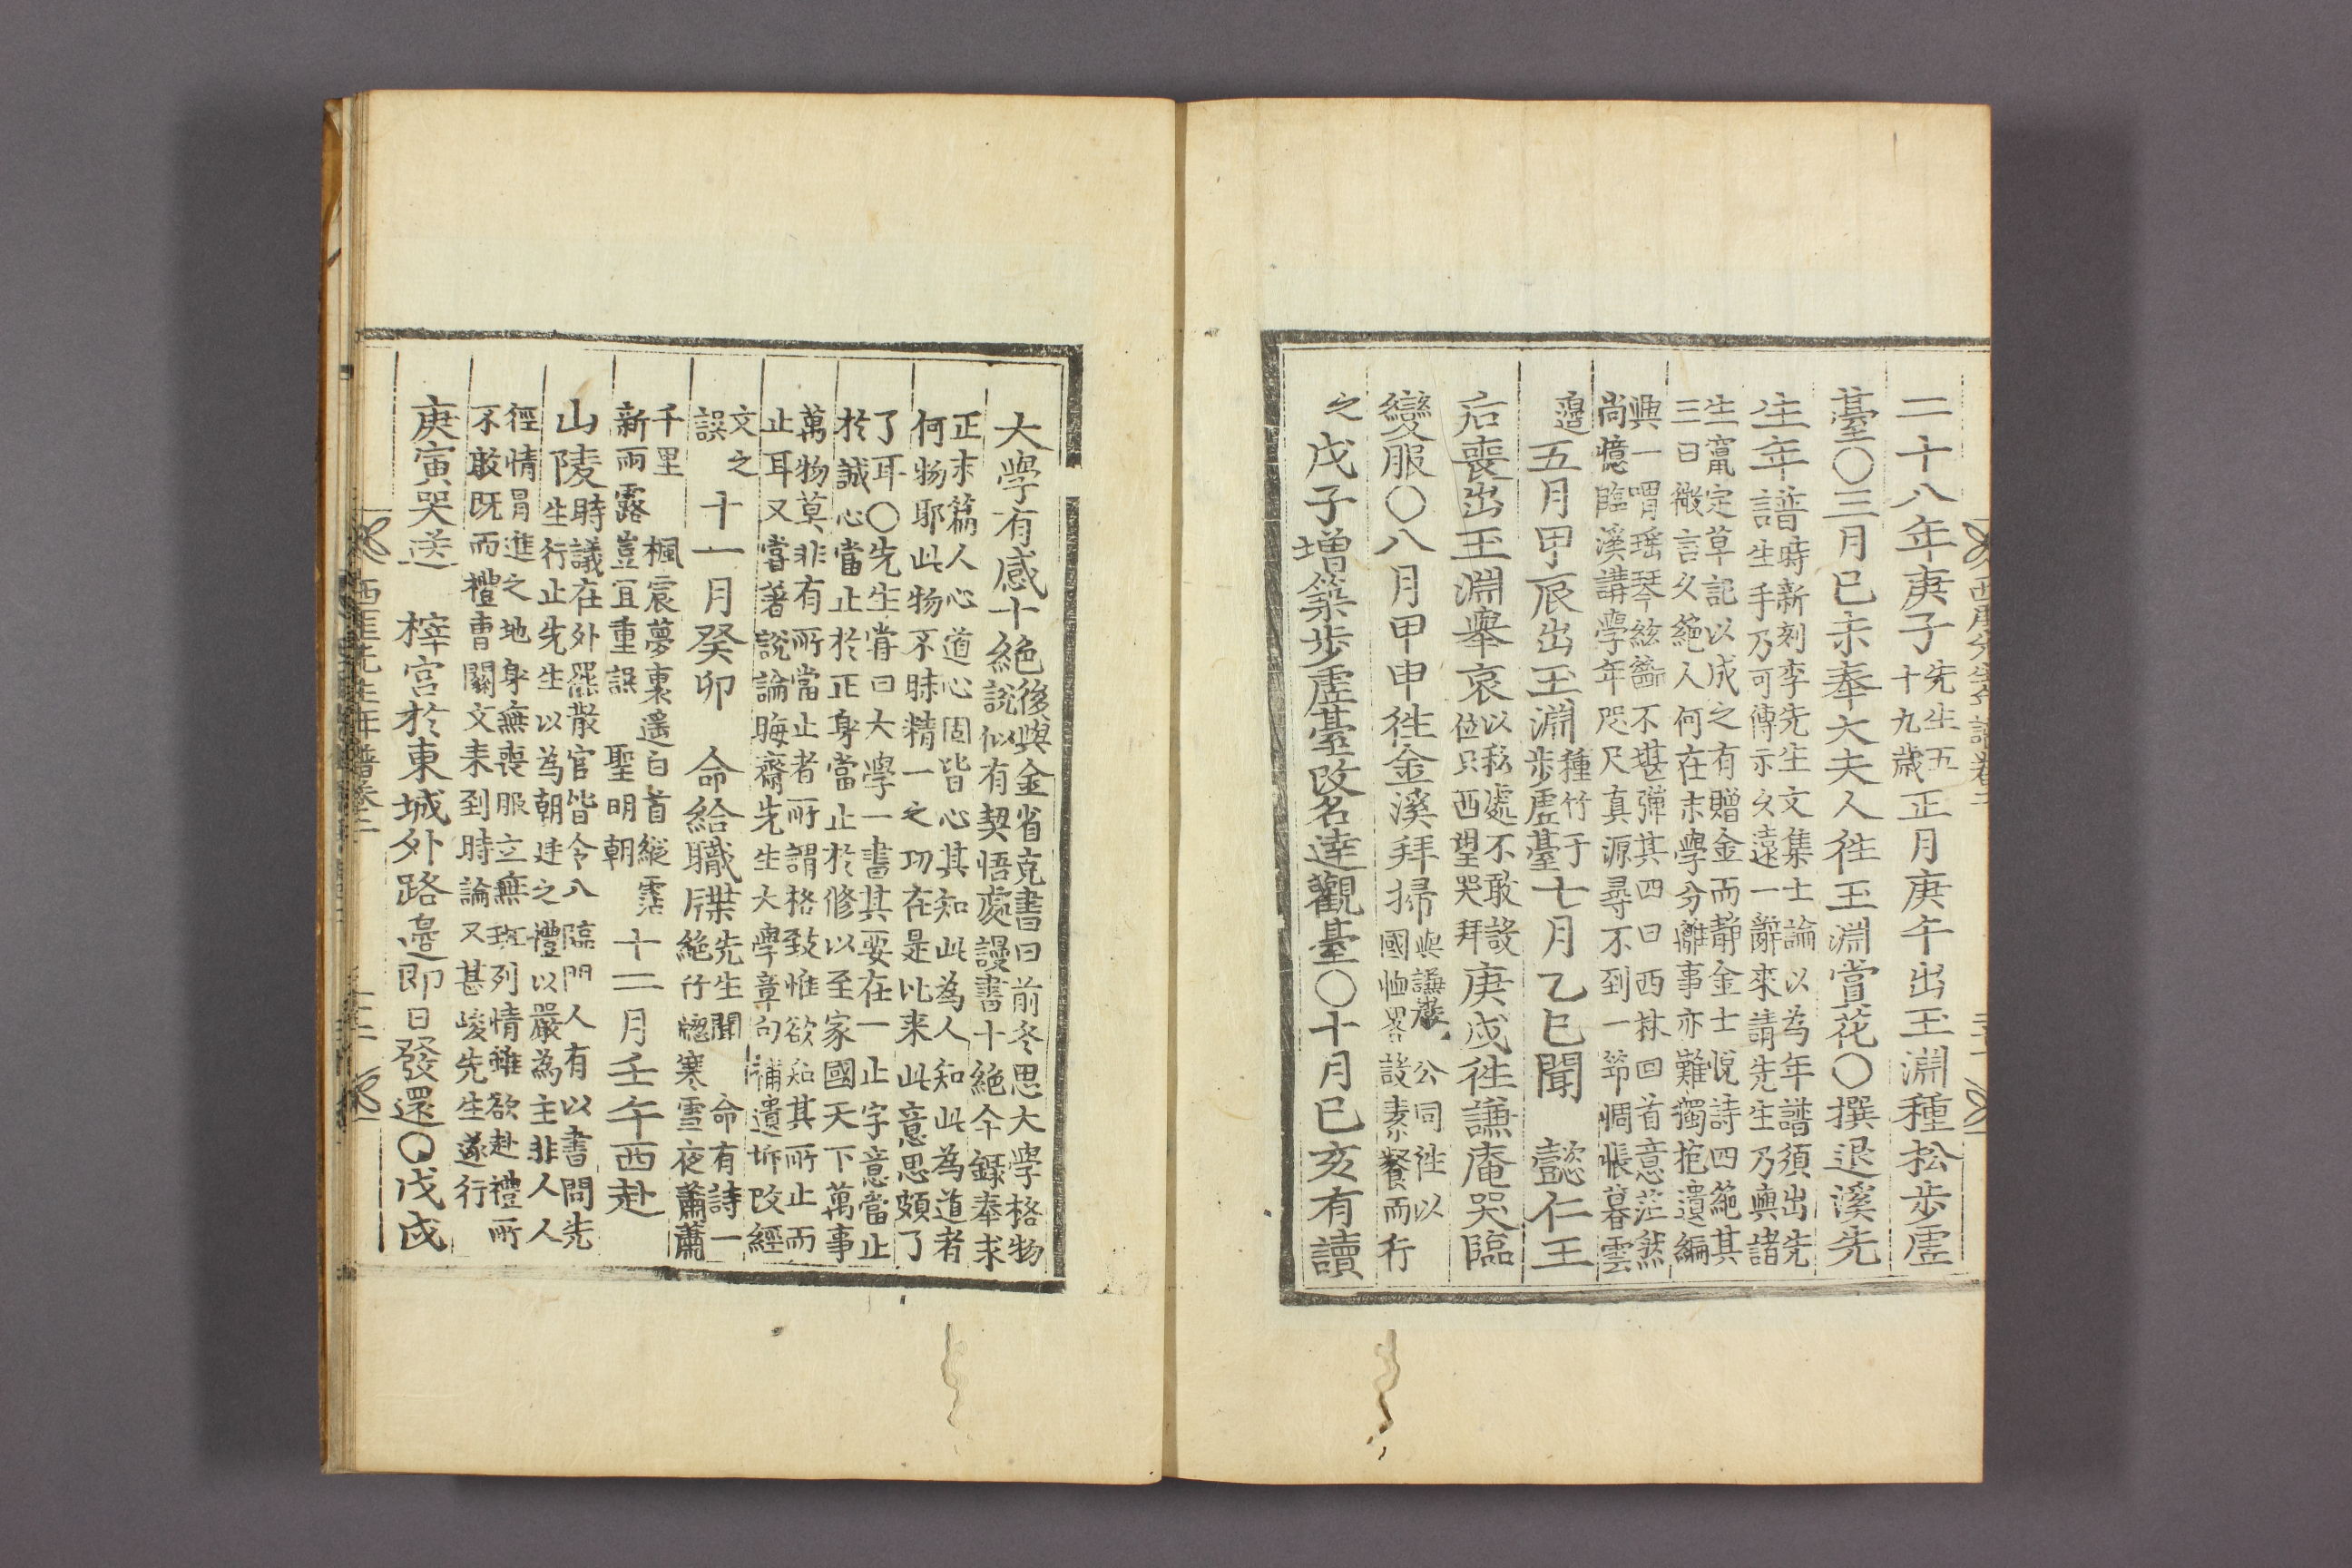 二十八年庚子先生五十九歲正月庚午出玉淵種松步虛
臺〇三月己未奉大夫人往玉淵賞花〇撰退溪先
生年譜時新刻李先生文集士論以為年譜須出先
生手乃可傳示久遠一辭來請先生乃與諸
生竄定草記以成之有贈金而靜金士悅詩四絶其
三曰微言久絶人何在末學分離事亦難獨抱遺編
興一喟瑤琴絃斷不堪彈其四曰西林回首意茫然
尚憶臨溪講學年咫尺真源尋不到一笻惆悵暮雲
邊五月甲辰出玉淵種竹于步虛臺七月乙巳聞 懿仁王
后喪出玉淵擧哀以私處不敢設位只西望哭拜庚戌往謙庵哭臨
變服〇八月甲申往金溪拜掃與謙菴公同往以國恤畧設素餐而行
之戊子增築步虛臺改名達觀臺〇十月己亥有讀
西厓先生年譜卷二
大學有感十絶後與金省克書曰前冬思大學格物
說似有契悟處謾書十絶今錄奉求
正末篇人心道心固皆心其知此為人知此為道者
何物耶此物不昧精一之功在是比来此意思頗了
了耳〇先生嘗曰大學一書其要在一止字意當止
於誠心當止於正身當止於修以至家國天下萬事
萬物莫非有所當止者所謂格致惟欲知其所止而
止耳又嘗著說論晦齋先生大學章句補遺斥改經
文之誤 十一月癸卯 命給職牒先生聞 命有詩一絶行䆫寒雪夜蕭蕭
千里 楓宸夢裏遙白首縱霑
新雨露豈宜重誤 聖明朝 十二月壬午西赴
山陵時議在外罷散官皆令入臨門人有以書問先
生行止先生以為朝廷之禮以嚴為主非人人
徑情冒進之地身無喪服立無班列情雖欲赴禮所
不敢既而禮曹關文来到時論又甚峻先生遂行
庚寅哭送 梓宮於東城外路邊即日發還〇戊戌
西厓先生年譜卷二